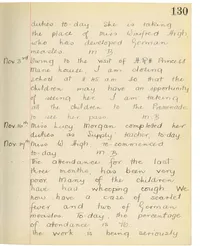 130
duties to-day. She is taking
the place of Miss Winifred High
who has developed German
measles. M.B.
Nov. 3rd Owing to the visit of H.R.H. Princess
Marie Louise, I am closing
school at 11.40 a.m. so that the
children may have an opportunity
of seeing her. I am taking
all the children to the Promenade
to see her pass. M.B.
Nov. Miss Lucy Morgan completed her
duties as Supply teacher, to-day.
Nov. Miss W. High re-commenced
to-day. M.B.
The attendance for the last
three months, has been very
poor. Many of the children
have had whooping cough. We
now have a case of scarlet
fever and two of German
measles. To-day, the percentage
of attendance is
The work is being seriously